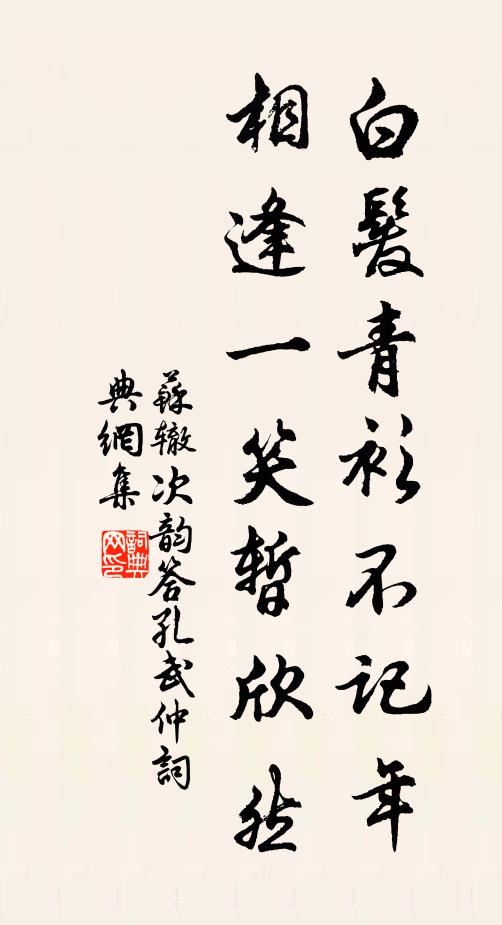 白髮青衫不記年
相逢一笑暫欣然
蘇轍次韵答孔武仲詞
典網集
詞典
网印